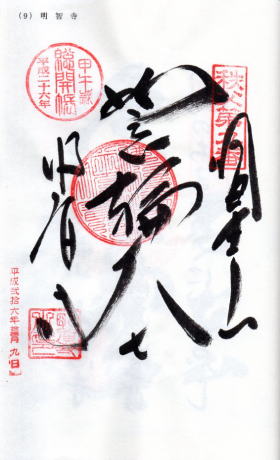 (9) 明智寺
甲午歳
総開帳
平成二十六年
秩父第九番
明星山
如意輪大士
明智寺
平成弐拾六年
九日